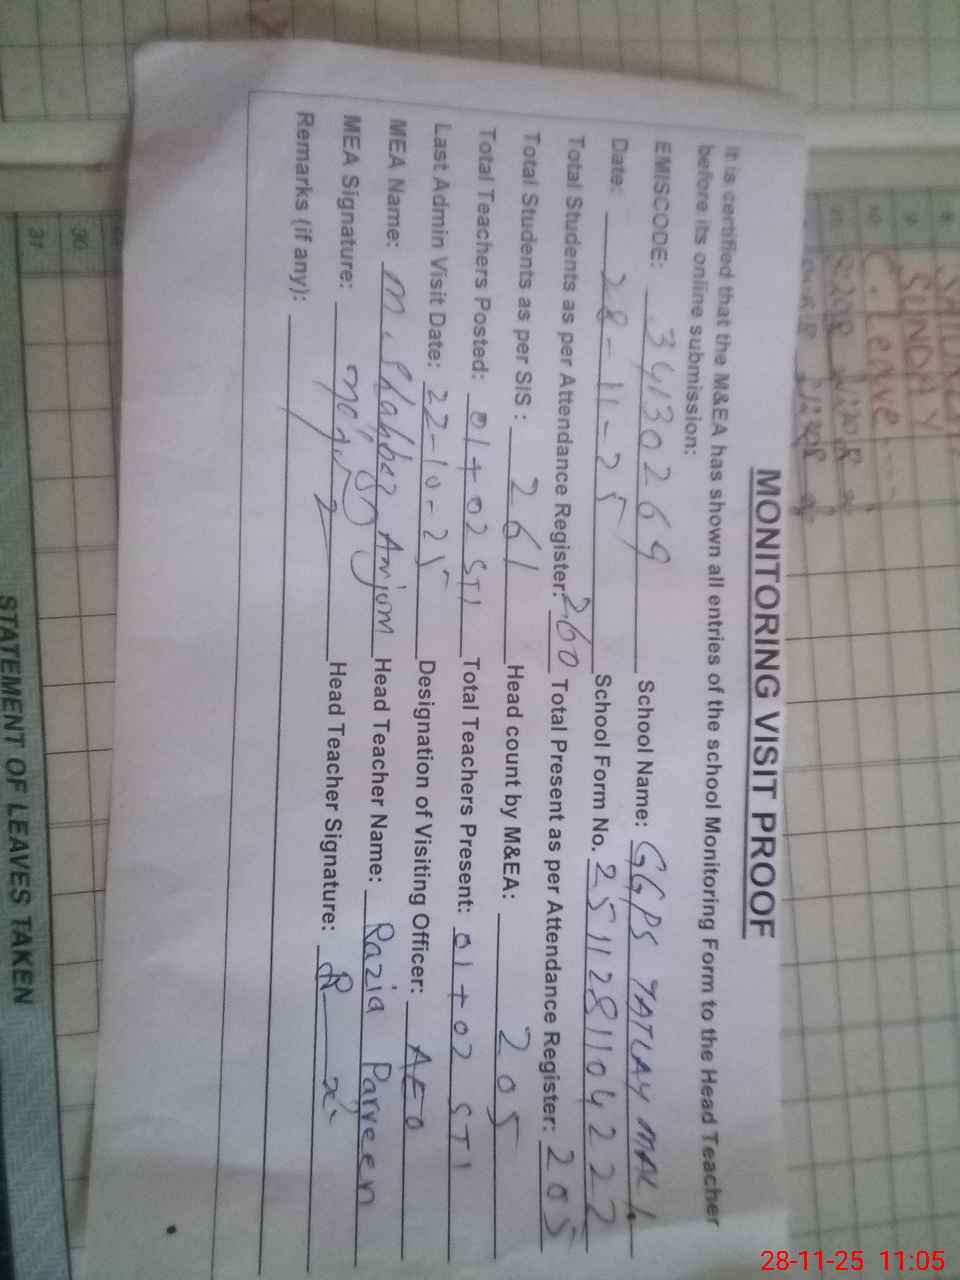 MONITORING VISIT PROOF
It is certified that the M&EA has shown all entries of the school Monitoring Form to the Head Teacher
before its online submission:
EMISCODE: 34130269 School Name: GGPS TATLAY MALI
Date: 28-11-25 School Form No. 2511281104222
Total Students as per Attendance Register: 260 Total Present as per Attendance Register: 205
Total Students as per SIS : 261 Head count by M&EA: 205
Total Teachers Posted: 01+02 STI Total Teachers Present: 01+02 STI
Last Admin Visit Date: 22-10-25 Designation of Visiting Officer: AEO
MEA Name: M. Shahbaz Anjom Head Teacher Name: Razia Parveen
MEA Signature: Head Teacher Signature:
Remarks (if any):
SUNDAY
C. Leave
30
31
STATEMENT OF LEAVES TAKEN
28-11-25 11:05